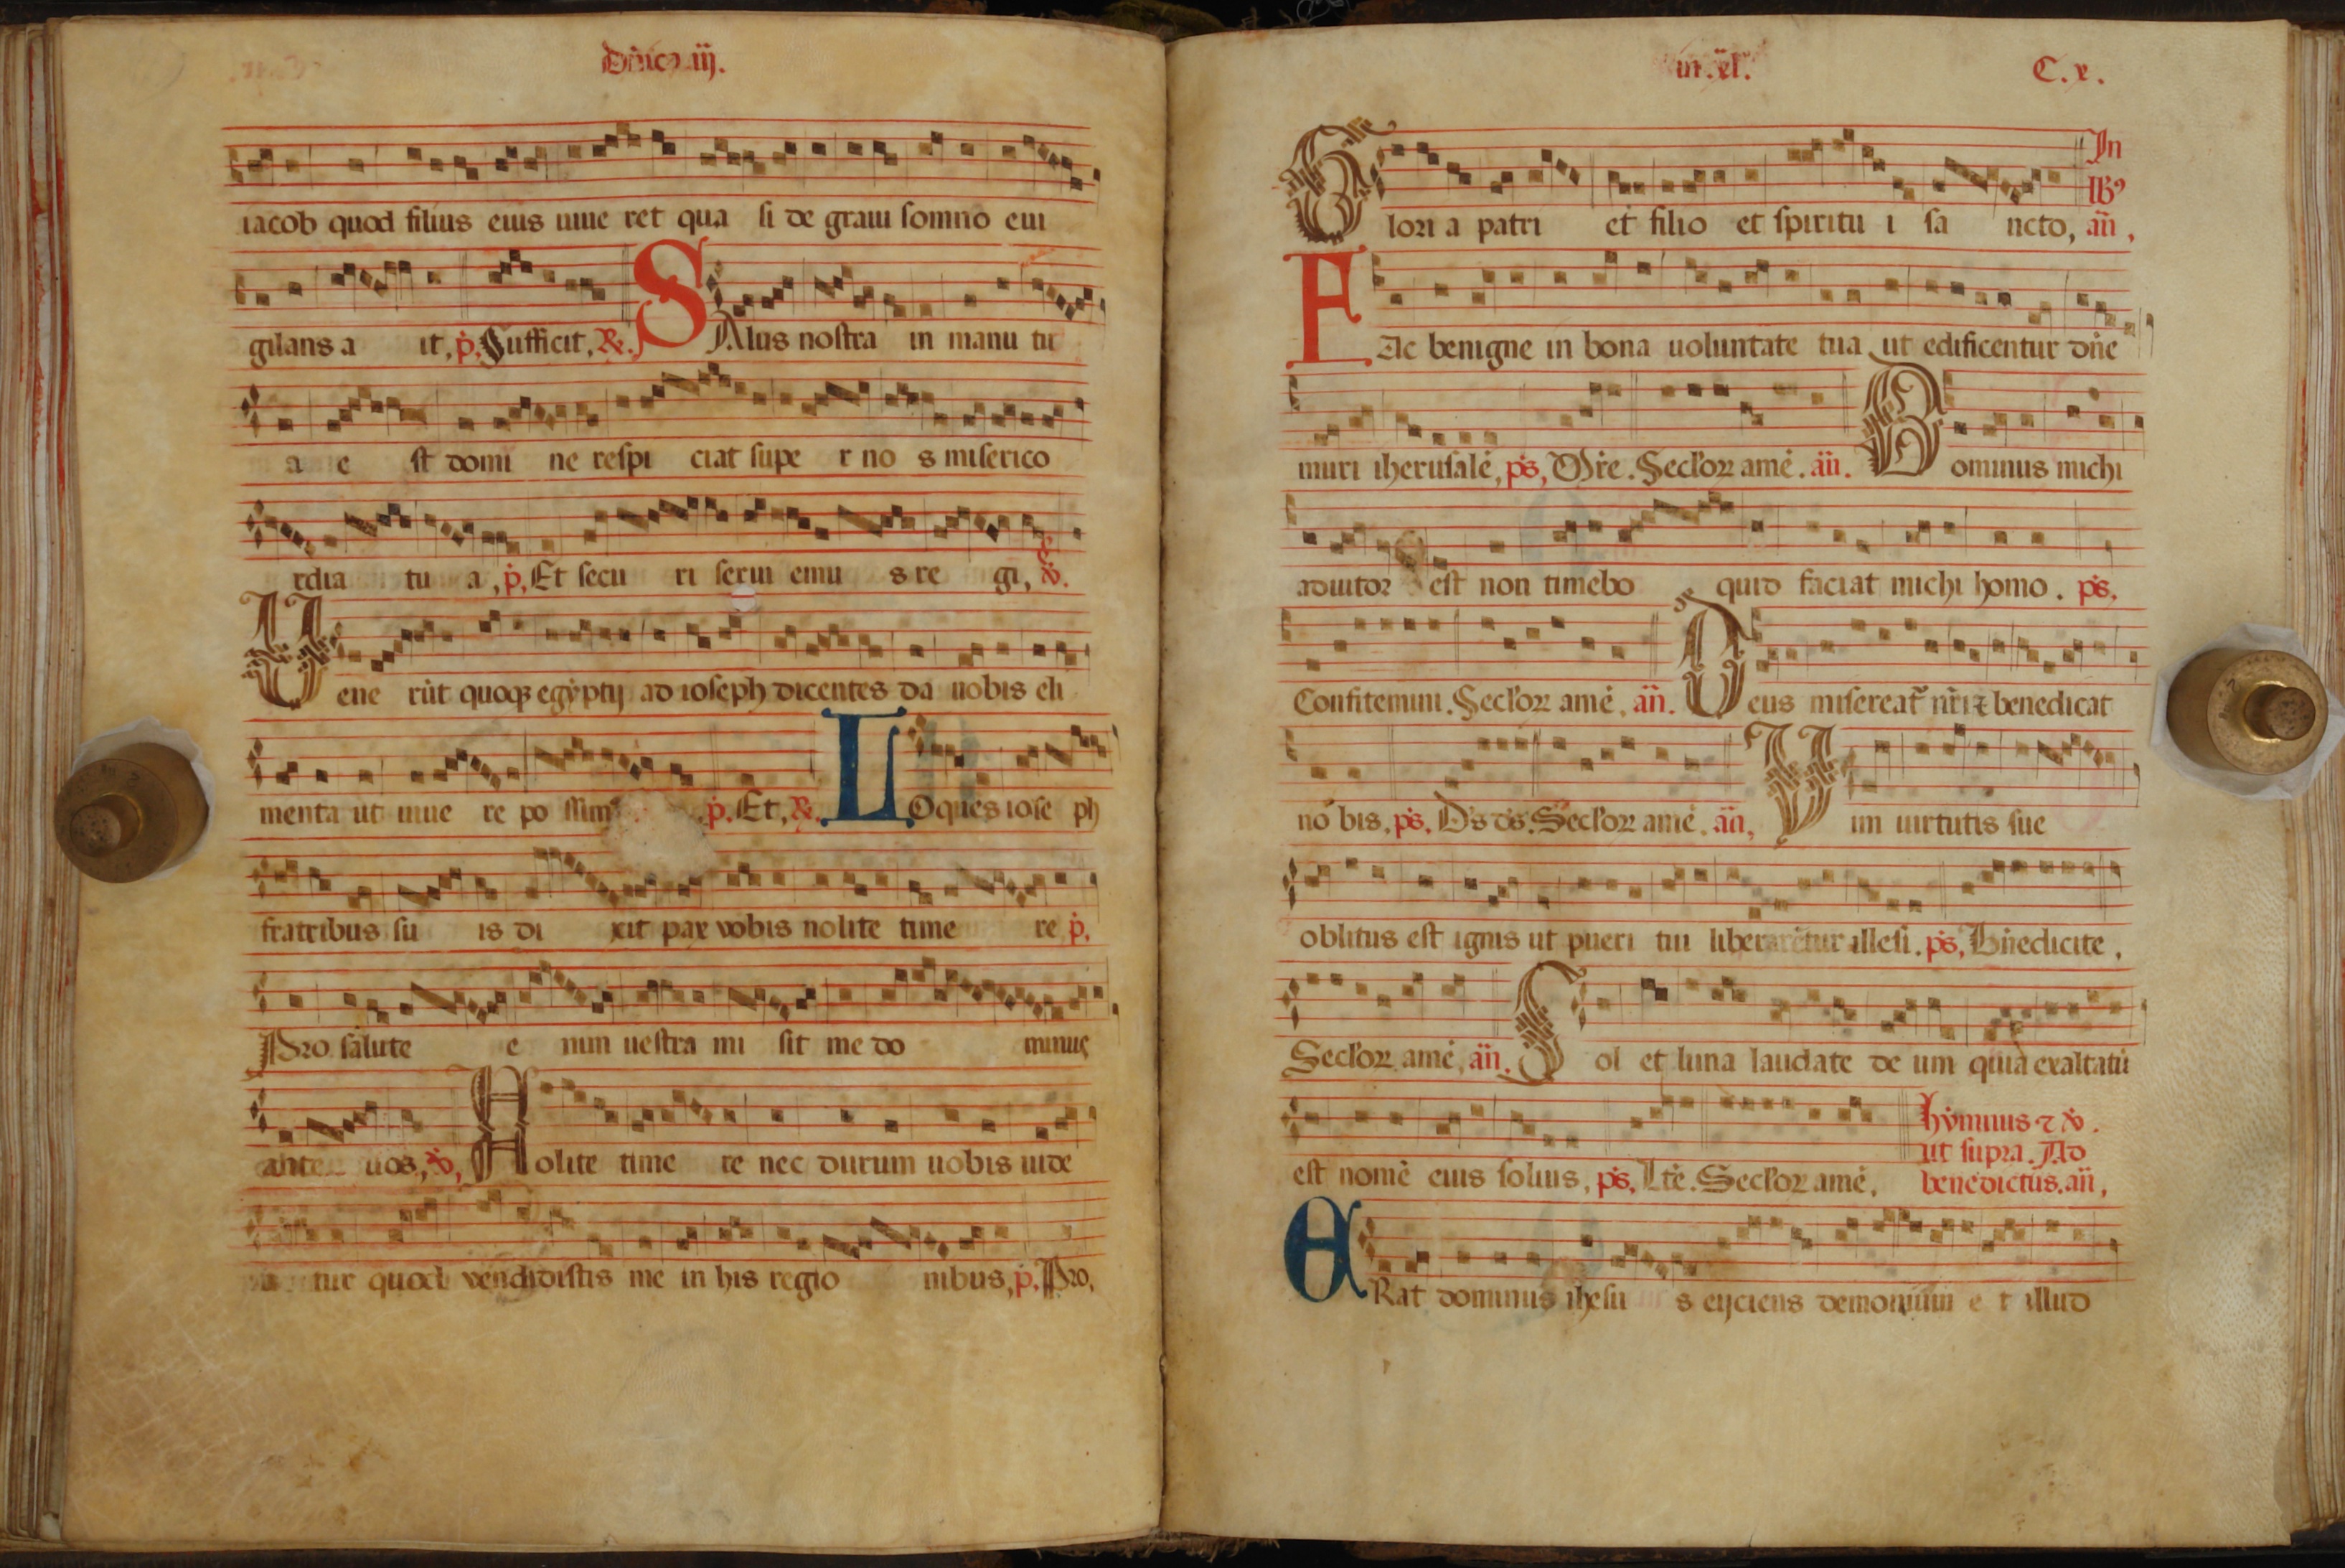 Dñica iij.
iacob quod filius eius uiue ret qua si de graui somno eui
gilans a it, p̃. Sufficit, R̃.
SAlus nostra in manu tu
a e st domi ne respi ciat supe r no s miserico
rdia tu a, p̃. Et secu ri serui emu s re gi, ṽ.
Uene rũt quoqz egyptij ad ioseph dicentes da nobis eli
menta ut uiue re po ssim p̃. Et, R̃. LOques iose ph
fratribus su is di xit pax vobis nolite time re p̃.
Pro salute e nim uestra mi sit me do minus
ante uos, ṽ, Nolite time re nec durum uobis uide
tur quod vendidistis me in his regio nibus, p̃. Pro,
in .xl. C. x.
Glori a patri et filio et spiritu i sa ncto, In lb9 añ,
FAc benigne in bona uoluntate tua ut edificentur dñe
muri iherusalẽ, ps̃, Mr̃e. Secl'oꝝ amẽ. añ. Dominus michi
adiutor est non timebo quid faciat michi homo. ps̃,
Confitemini. Secl'oꝝ amẽ, añ. Deus misereat᷑ nr̃i ⁊ benedicat
nobis, ps̃. D's d's. Secl'oꝝ amẽ. añ, Uim uirtutis sue
oblitus est ignis ut pueri tui liberarẽtur illesi. ps̃, Bñedicite,
Secl'oꝝ amẽ, añ. Sol et luna laudate de um quia exaltatũ
est nomẽ eius solius, ps̃, Lt̃e. Secl'oꝝ amẽ,
hymnus ⁊ ṽ.
ut supra. Ad
benedictus. añ,
ERat dominus ihesu s eijciens demonium e t illud